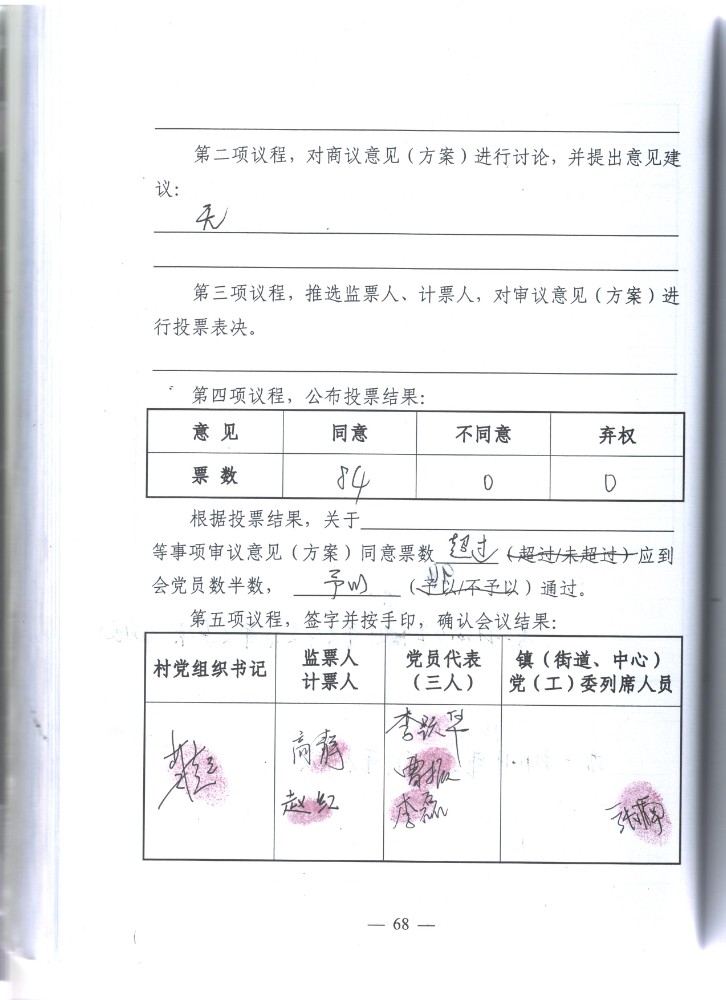 第二项议程，对商议意见（方案）进行讨论，并提出意见建
议：
无
第三项议程，推选监票人、计票人，对审议意见（方案）进
行投票表决。
第四项议程，公布投票结果：
意 见 同意 不同意 弃权
票 数 84 0 0
根据投票结果，关于
等事项审议意见（方案）同意票数 超过 （超过/未超过）应到
会党员数半数， 予以 （予以/不予以）通过。
第五项议程，签字并按手印，确认会议结果：
村党组织书记 监票人 计票人 党员代表（三人） 镇（街道、中心）党（工）委列席人员
高静
赵红
李跃华
曹振
李磊
— 68 —